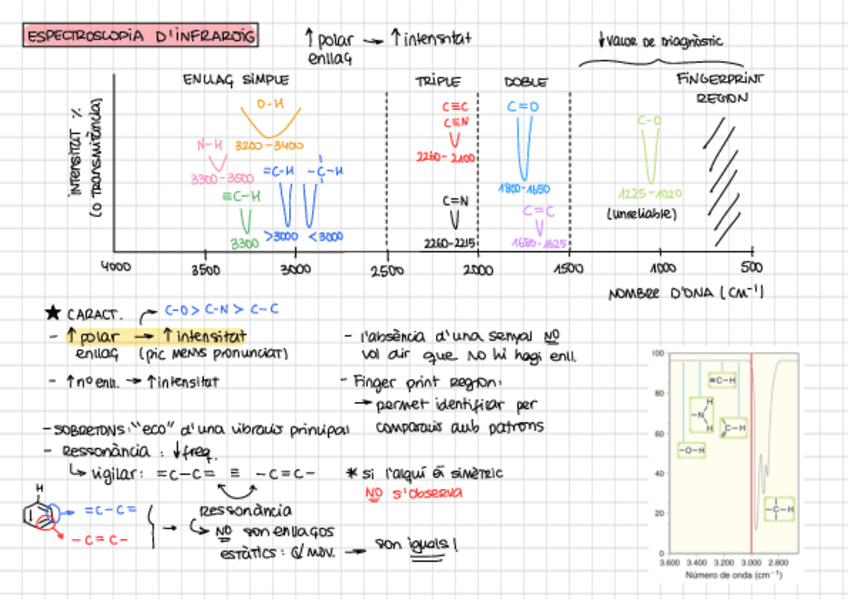 ESPECTROSCOPIA D'INFRAROIG
↑ polar → ↑ intensitat
enllaç
↓ VALOR DE DIAGNÒSTIC
ENLLAÇ SIMPLE
TRIPLE
DOBLE
FINGERPRINT
REGION
INTENSITAT %
(O TRANSMITÀNCIA)
O-H
3200-3400
N-H
3300-3500
≡C-H
3300
=C-H
>3000
-C-H
<3000
C≡C
C≡N
2260-2100
C=N
2260-2215
C=O
1800-1650
C=C
1680-1625
C-O
1225-1020
(unreliable)
4000 3500 3000 2500 2000 1500 1000 500
NOMBRE D'ONA (CM⁻¹)
★ CARACT.
C-O > C-N > C-C
- ↑ polar → ↑ intensitat
enllaç (pic MENYS pronunciat)
- ↑ nº enll. → ↑ intensitat
- SOBRETONS: "eco" d'una vibració principal
- Ressonància: ↓ freq.
↳ vigilar: =C-C= ≡ -C=C-
ressonància
↳ NO son enllaços
estàtics: e⁻ mov. → son iguals!
H
=C-C=
-C=C-
- l'absència d'una senyal NO
vol dir que NO hi hagi enll.
- Finger print Region:
→ permet identificar per
comparació amb patrons
* si l'alquí és simètric
NO s'observa
100
80
60
40
20
0
≡C-H
-N
H
H
C-H
-O-H
-C-H
3.600 3.400 3.200 3.000 2.800
Número de onda (cm⁻¹)